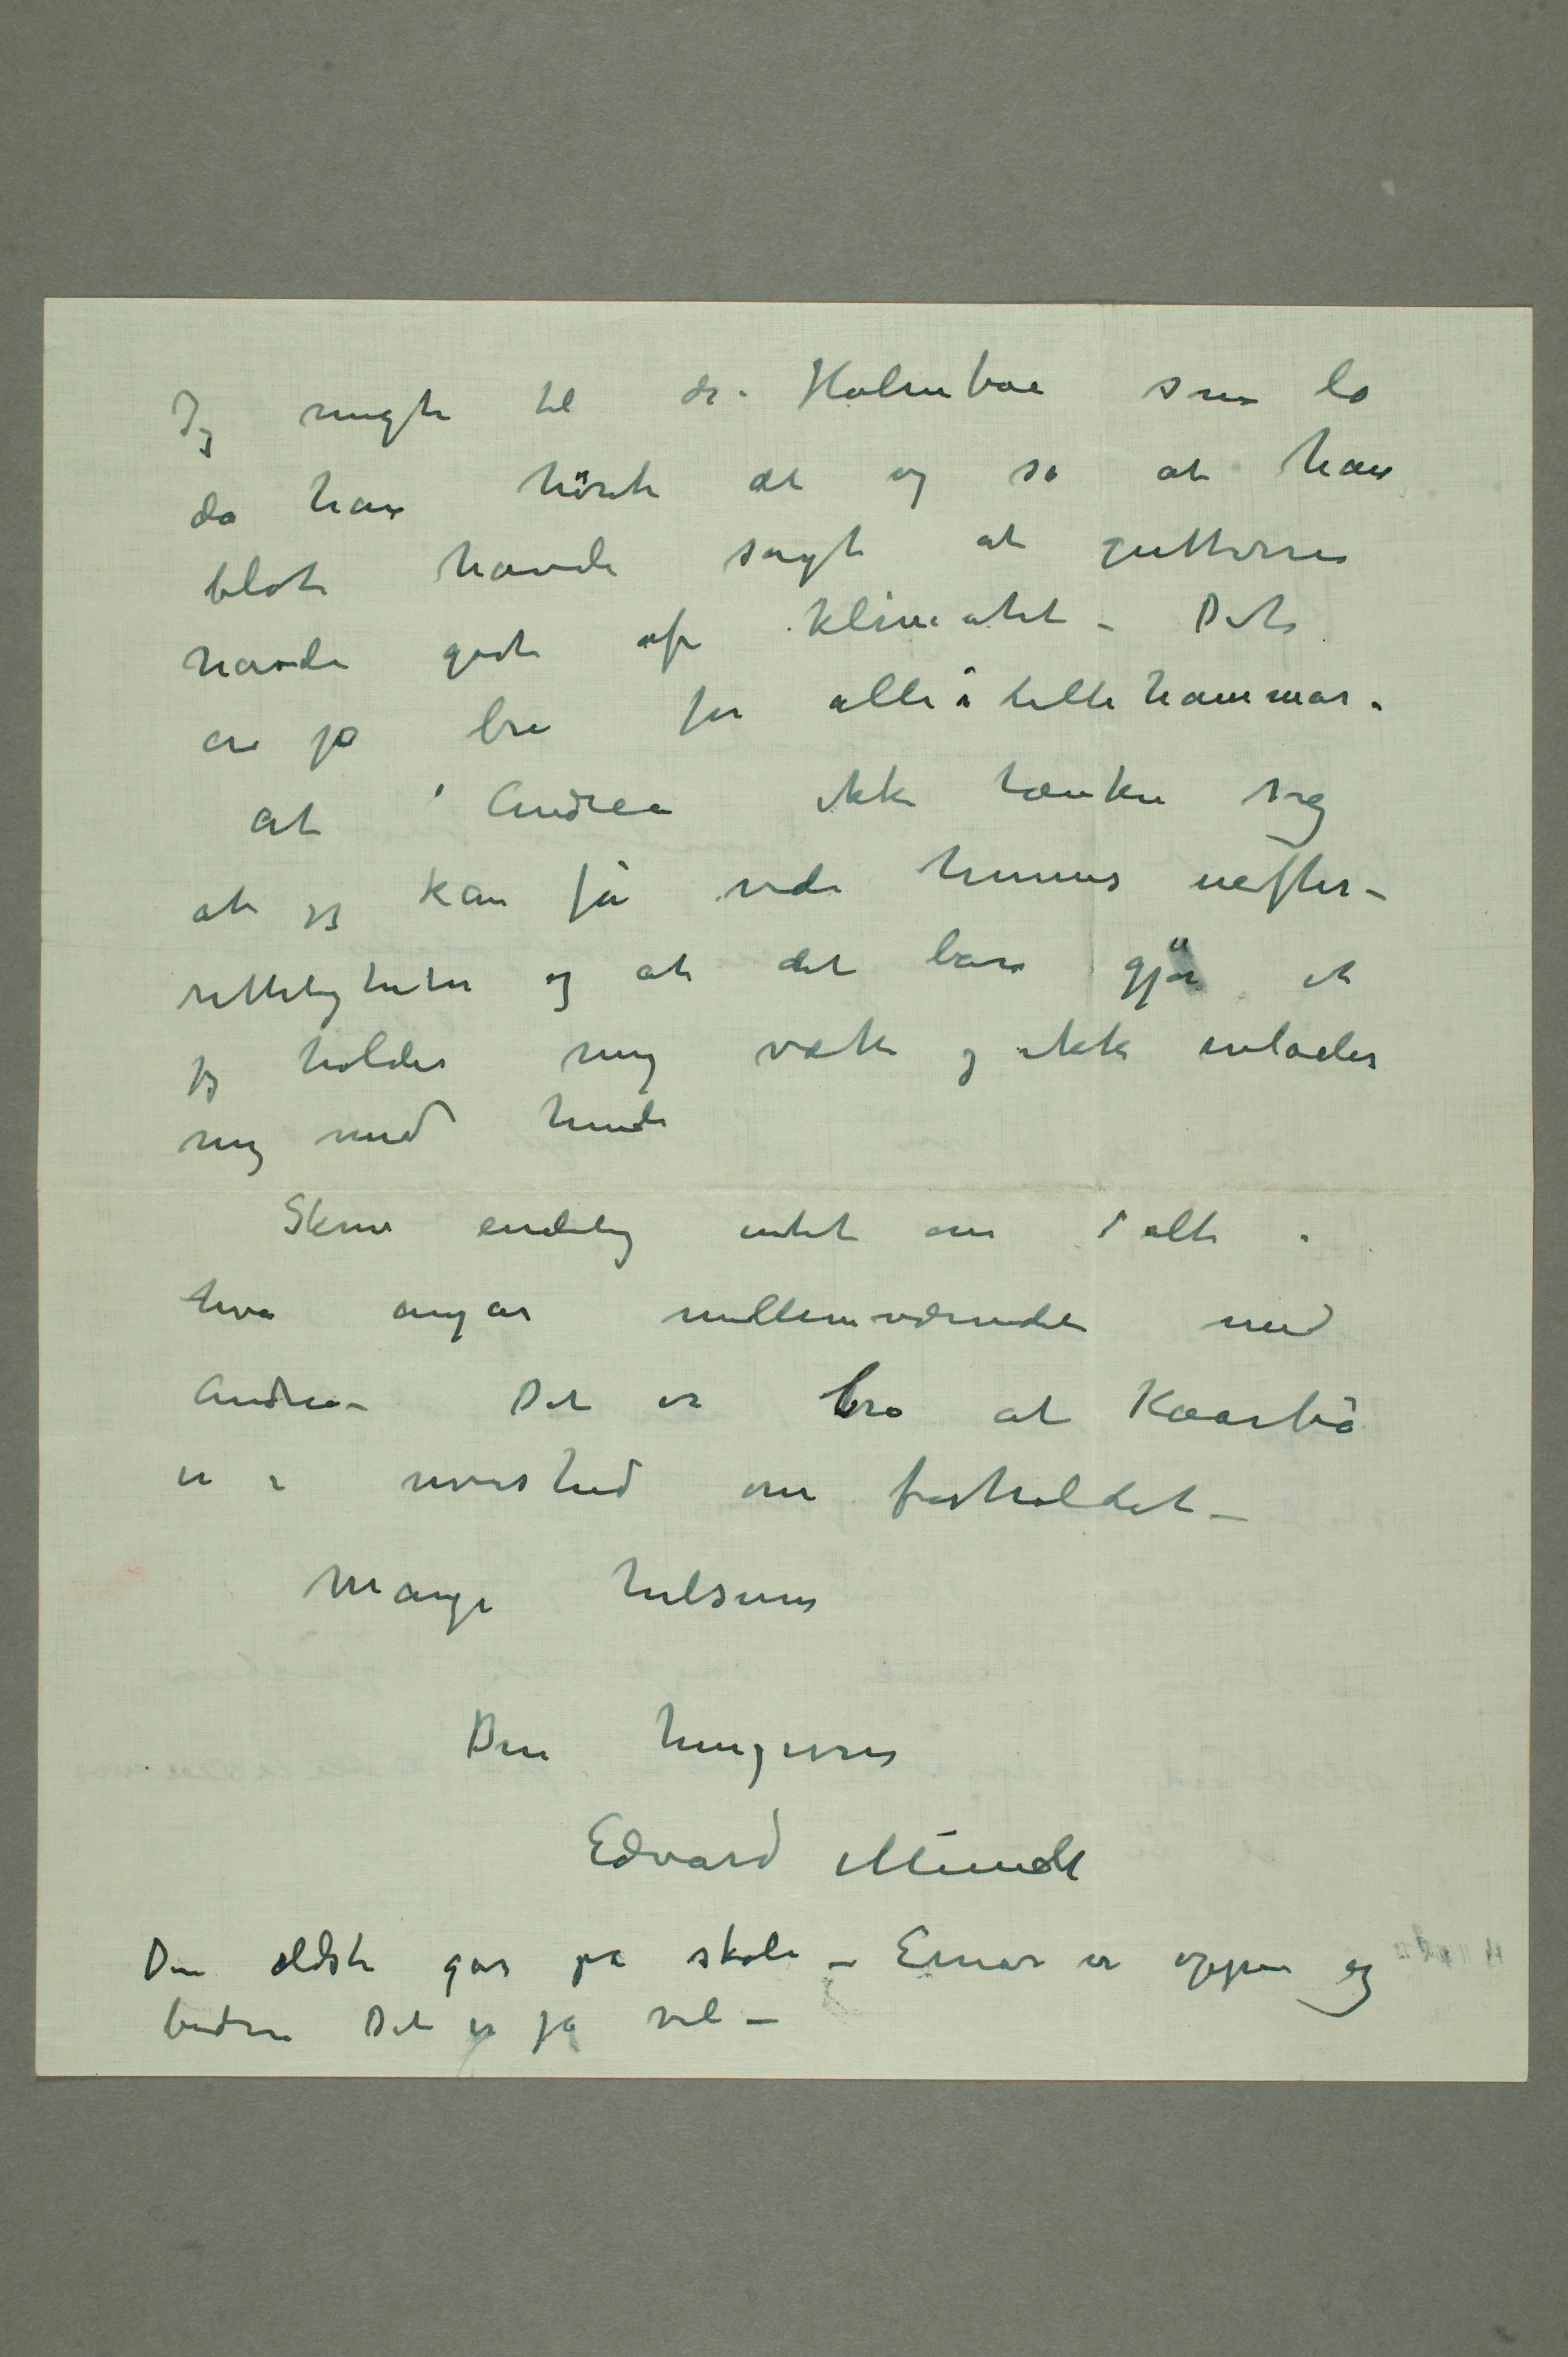 Jeg ringte til dr. Holmboe som lo
da han hörte det og sa at han
blot havde sagt at gutterne
havde godt af klimatet – Det
er jo bra for alle i Lillehammer.
At Andrea ikke tænker sig
at jeg kan få vide hennes uefter-
retteligheter og at det bare gjør at
jeg holder mig væk og ikke inlader
mig med hende
Skriv endelig intet om i alt
hva angår mellemværendet med
Andrea – Det er bra at Kaarbö
er i uvished om forholdet –
Mange hilsener
Din hengivne
Edvard Munch
Den eldste går på skole – Einar er oppe og
bedre Det er ja vel –